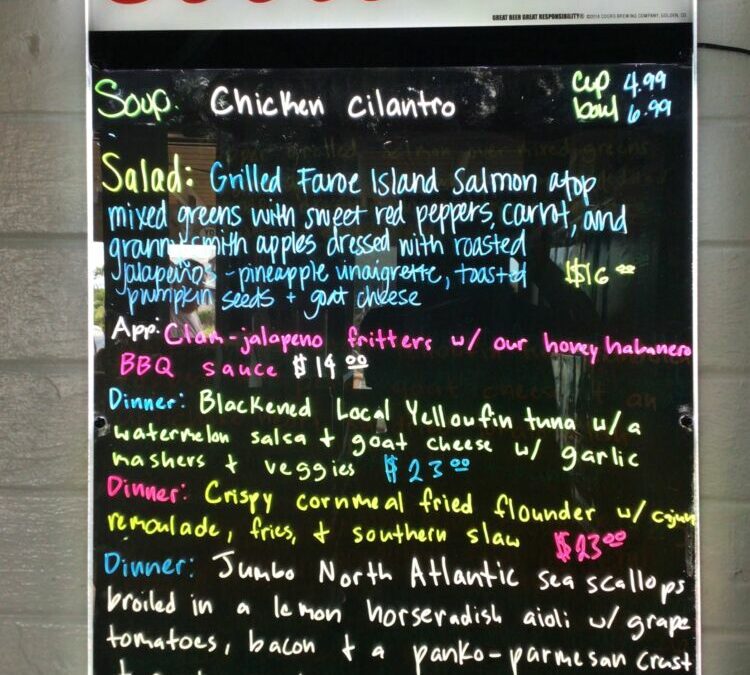 GREAT BEER GREAT RESPONSIBILITY® ©2014 COORS BREWING COMPANY, GOLDEN, CO
Soup. Chicken Cilantro cup 4.99
bowl 6.99
Salad: Grilled Faroe Island Salmon atop
mixed greens with sweet red peppers, carrot, and
granny smith apples dressed with roasted
jalapeños - pineapple vinaigrette, toasted $16 00
pumpkin seeds + goat cheese
App: Clam-jalapeno fritters w/ our honey habanero
BBQ sauce $14 00
Dinner: Blackened Local Yellowfin tuna w/a
watermelon salsa + goat cheese w/ garlic
mashers + veggies $23 00
Dinner: Crispy cornmeal fried flounder w/ cajun
remoulade, fries, + southern slaw $23 00
Dinner: Jumbo North Atlantic sea scallops
broiled in a lemon horseradish aioli w/ grape
tomatoes, bacon + a panko-parmesan crust